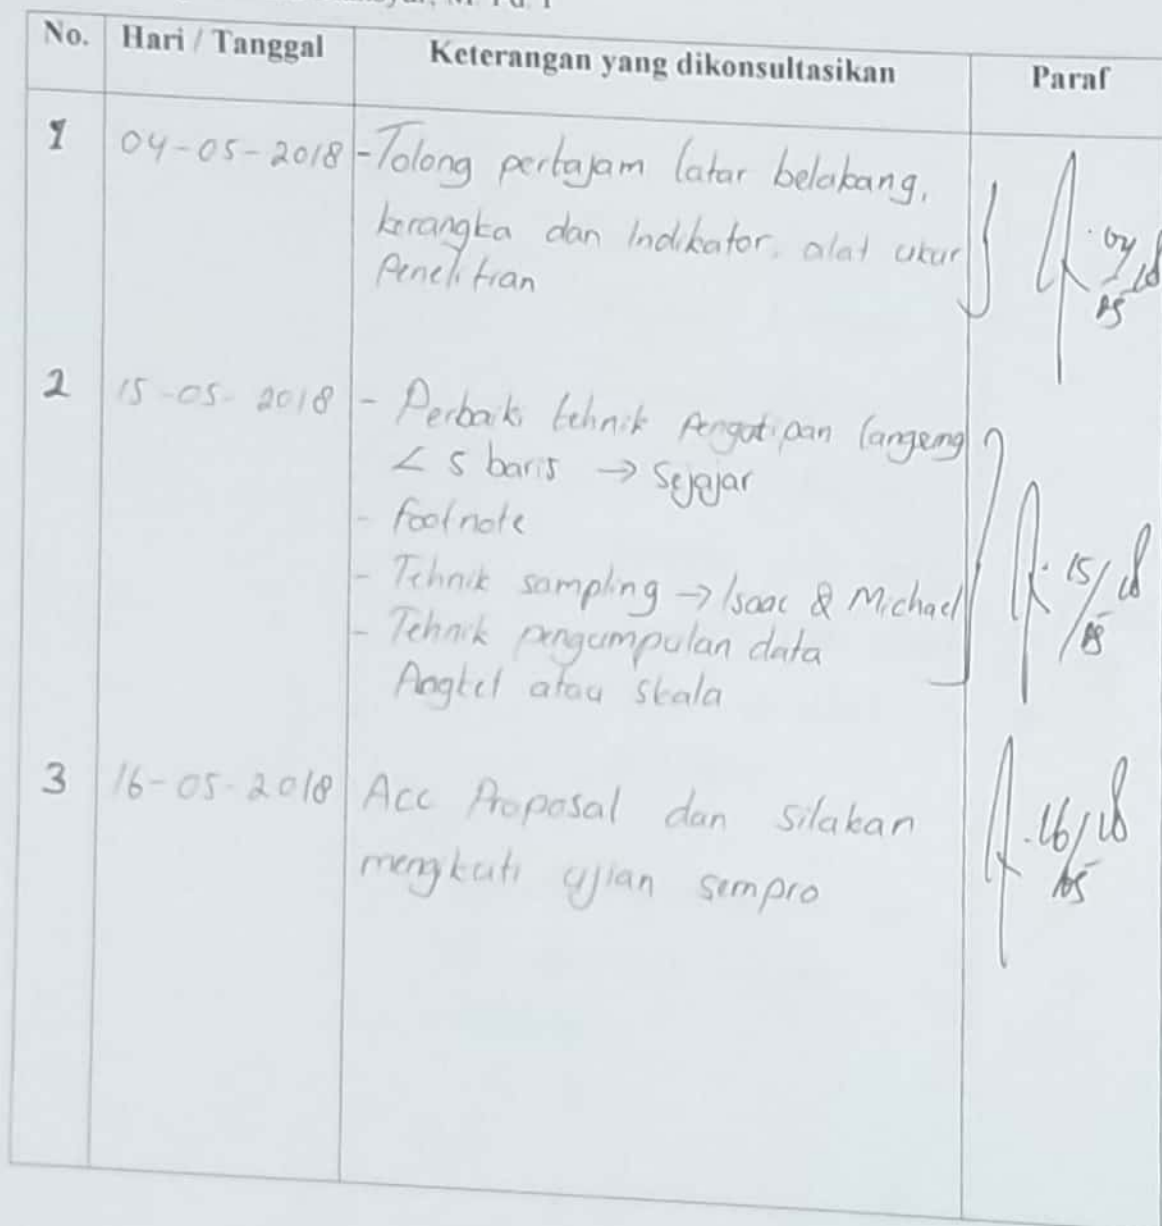 M. Pd. I
No. Hari / Tanggal Keterangan yang dikonsultasikan Paraf
1 04-05-2018 - Tolong pertajam latar belakang,
kerangka dan Indikator, alat ukur
Penelitian
04/05 18
2 15-05-2018 - Perbaiki tehnik pengutipan langsung
< 5 baris → Sejajar
- footnote
- Tehnik sampling → Isaac & Michael
- Tehnik pengumpulan data
Angket atau skala
15/05 18
3 16-05-2018 Acc Proposal dan silakan
mengikuti ujian sempro
16/05 18